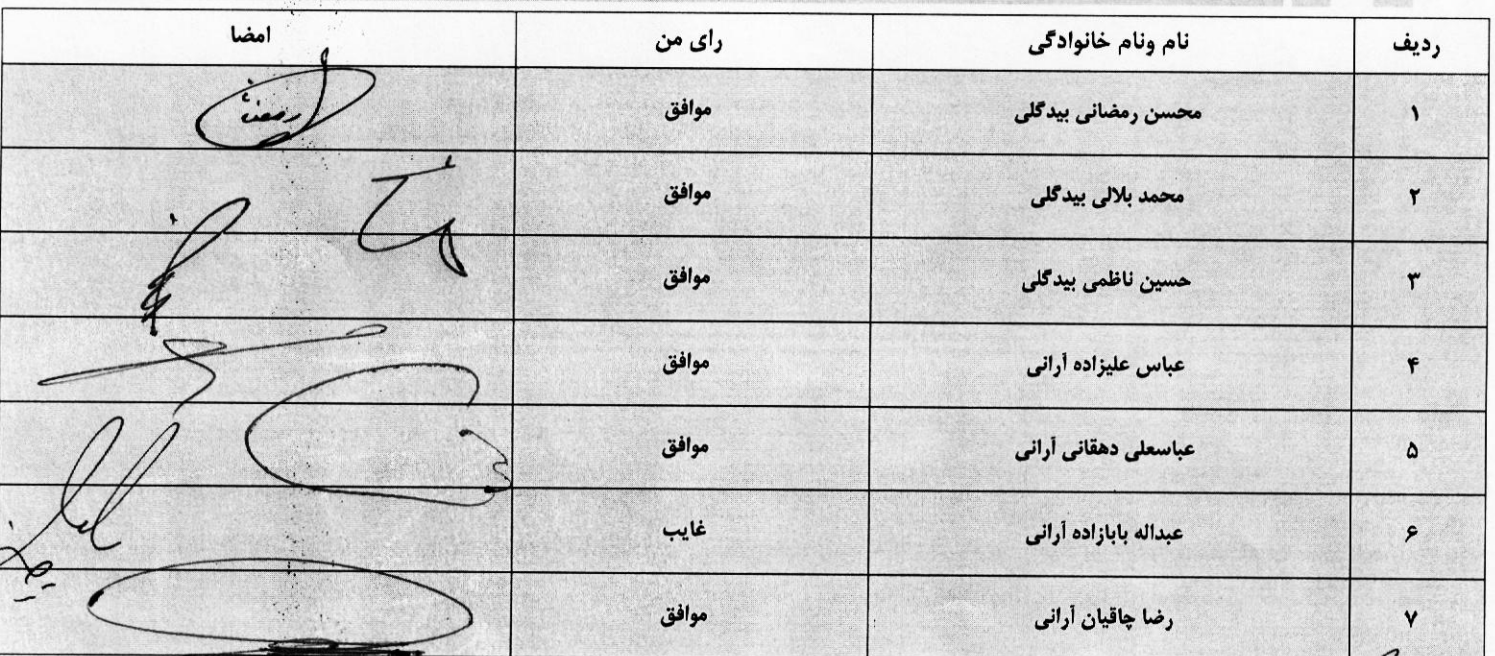 ردیف نام ونام خانوادگی رای من امضا
۱ محسن رمضانی بیدگلی موافق
۲ محمد بلالی بیدگلی موافق
۳ حسین ناظمی بیدگلی موافق
۴ عباس علیزاده آرانی موافق
۵ عباسعلی دهقانی آرانی موافق
۶ عبداله بابازاده آرانی غایب
۷ رضا چاقیان آرانی موافق